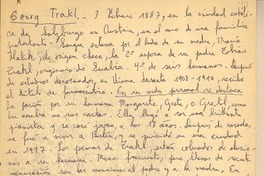 Georg Trakl. 3 Febrero 1887, en la ciudad católi-
ca de Salzburgo en Austria, en el seno de una familia
protestante. Sangre eslava por el lado de su madre, María
Halik (de origen checo), de 2ª esposa de su padre Tobías
Trakl, originario de Suabia. 4º de seis hermanos. Después
de estudios desordenados, en Viena durante 1908-1910, recibe
el título de farmacéutico. En su vida personal se destaca
la pasión por su hermana Margarete, Grete, o Gretl, como
la nombra en sus cartas. Ella llegó a ser una brillante
pianista y se casó joven, a los 18 años, después de
se fue a vivir a Berlín, y se suicidó en esa ciudad
en 1917. Los poemas de Trakl están colmados de alusio-
nes a su hermana. Menos frecuentes, pero llenas de secreta
son las menciones al padre y a la madre. En